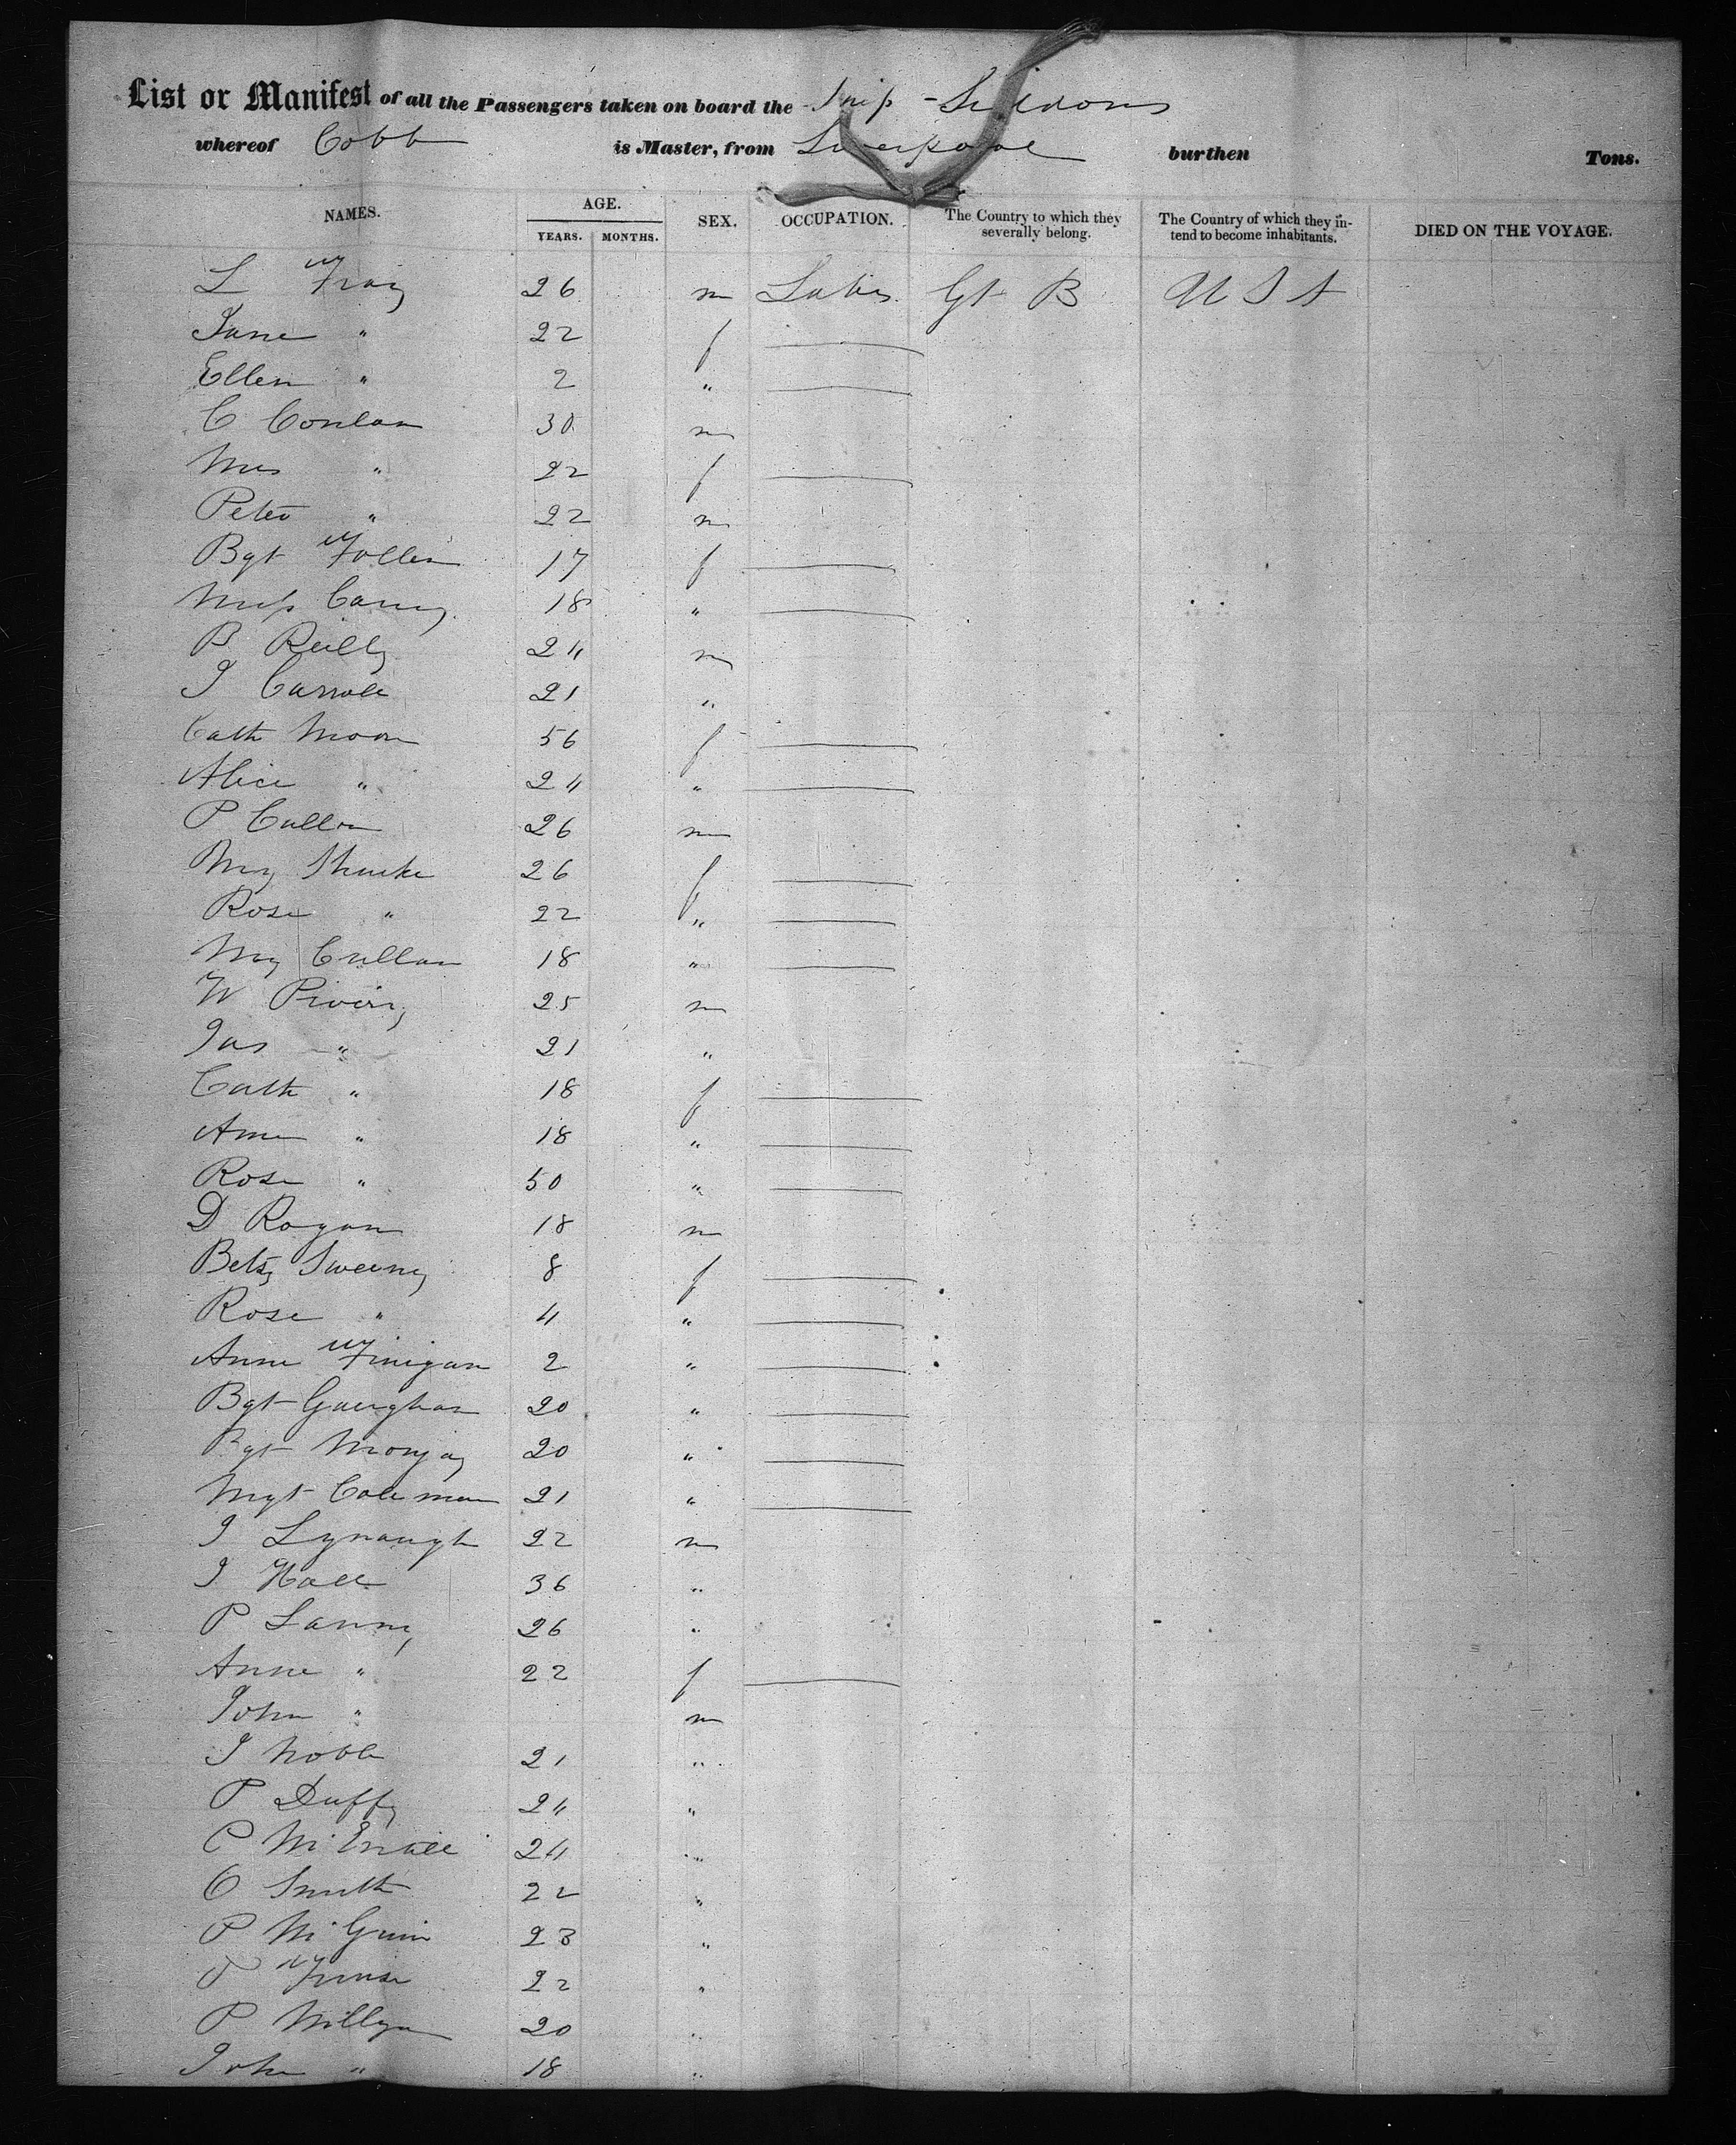 List or Manifest of all the Passengers taken on board the Ship Siddons
whereof Cobb is Master, from Liverpool burthen Tons.
NAMES. AGE. SEX. OCCUPATION. The Country to which they severally belong. The Country of which they intend to become inhabitants. DIED ON THE VOYAGE.
YEARS. MONTHS.
L 26 m Labr. Gt B U S A
Jane " 22 f
Ellen " 2 "
C Conlan 30 m
Mrs " 22 f
Peter " 22 m
Bgt Follen 17 f
Miss 18 "
B Reilly 24 m
J Carroll 21 "
Cath Moon 56 f
Alice " 24 "
P Cullen 26 m
My 26 f
Rose " 22 "
My Cullan 18 "
W 25 m
Jas " 21 "
Cath " 18 f
Anne " 18 "
Rose " 50 "
D Rogan 18 m
Betsy Sweeny 8 f
Rose " 4 "
Anne Finigan 2 "
Bgt Gaughan 20 "
Bgt 20 "
Mgt Coleman 21 "
J Lynaugh 22 m
J Hall 36 "
P Lanny 26 "
Anne " 22 f
John " m
J Noble 21 "
P Duffy 24 "
C 24 "
O Smith 22 "
P McGuin 23 "
22 "
P 20 "
John " 18 "